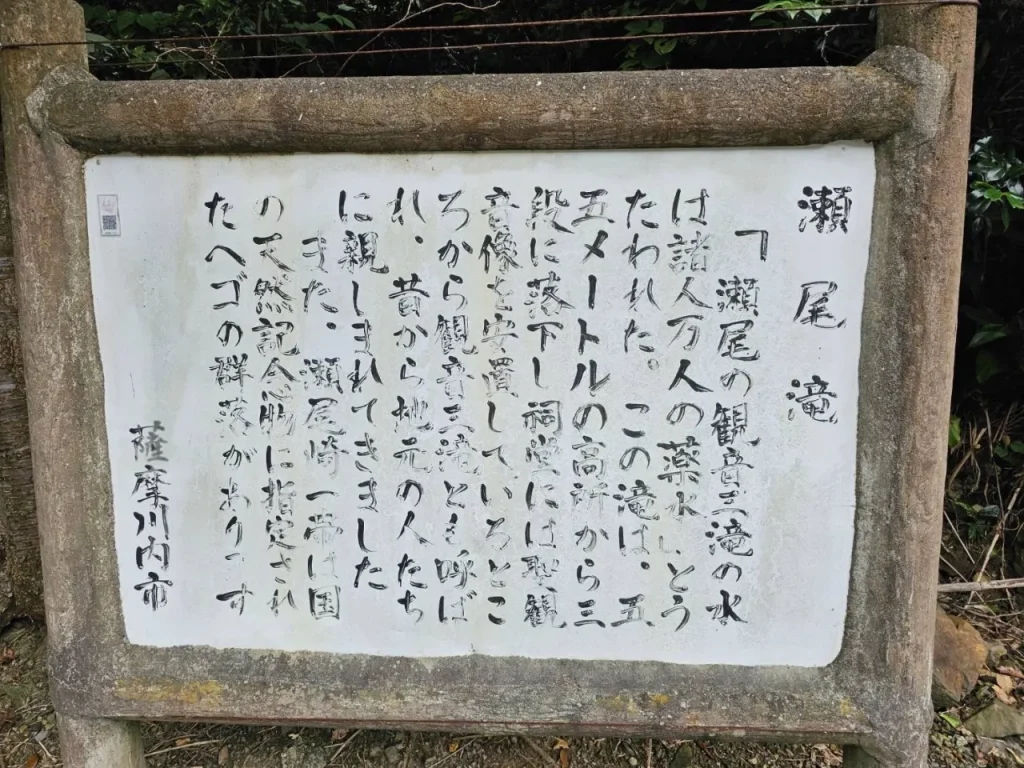 瀬尾滝
「瀬尾の観音三滝の水
は諸人万人の薬水」とう
たわれた。この滝は、五
五メートルの高所から三
段に落下し祠堂には聖観
音像を安置しているとこ
ろから観音三滝とも呼ば
れ、昔から地元の人たち
に親しまれてきました
また、瀬尾崎一帯は国
の天然記念物に指定され
たヘゴの群落があります
薩摩川内市